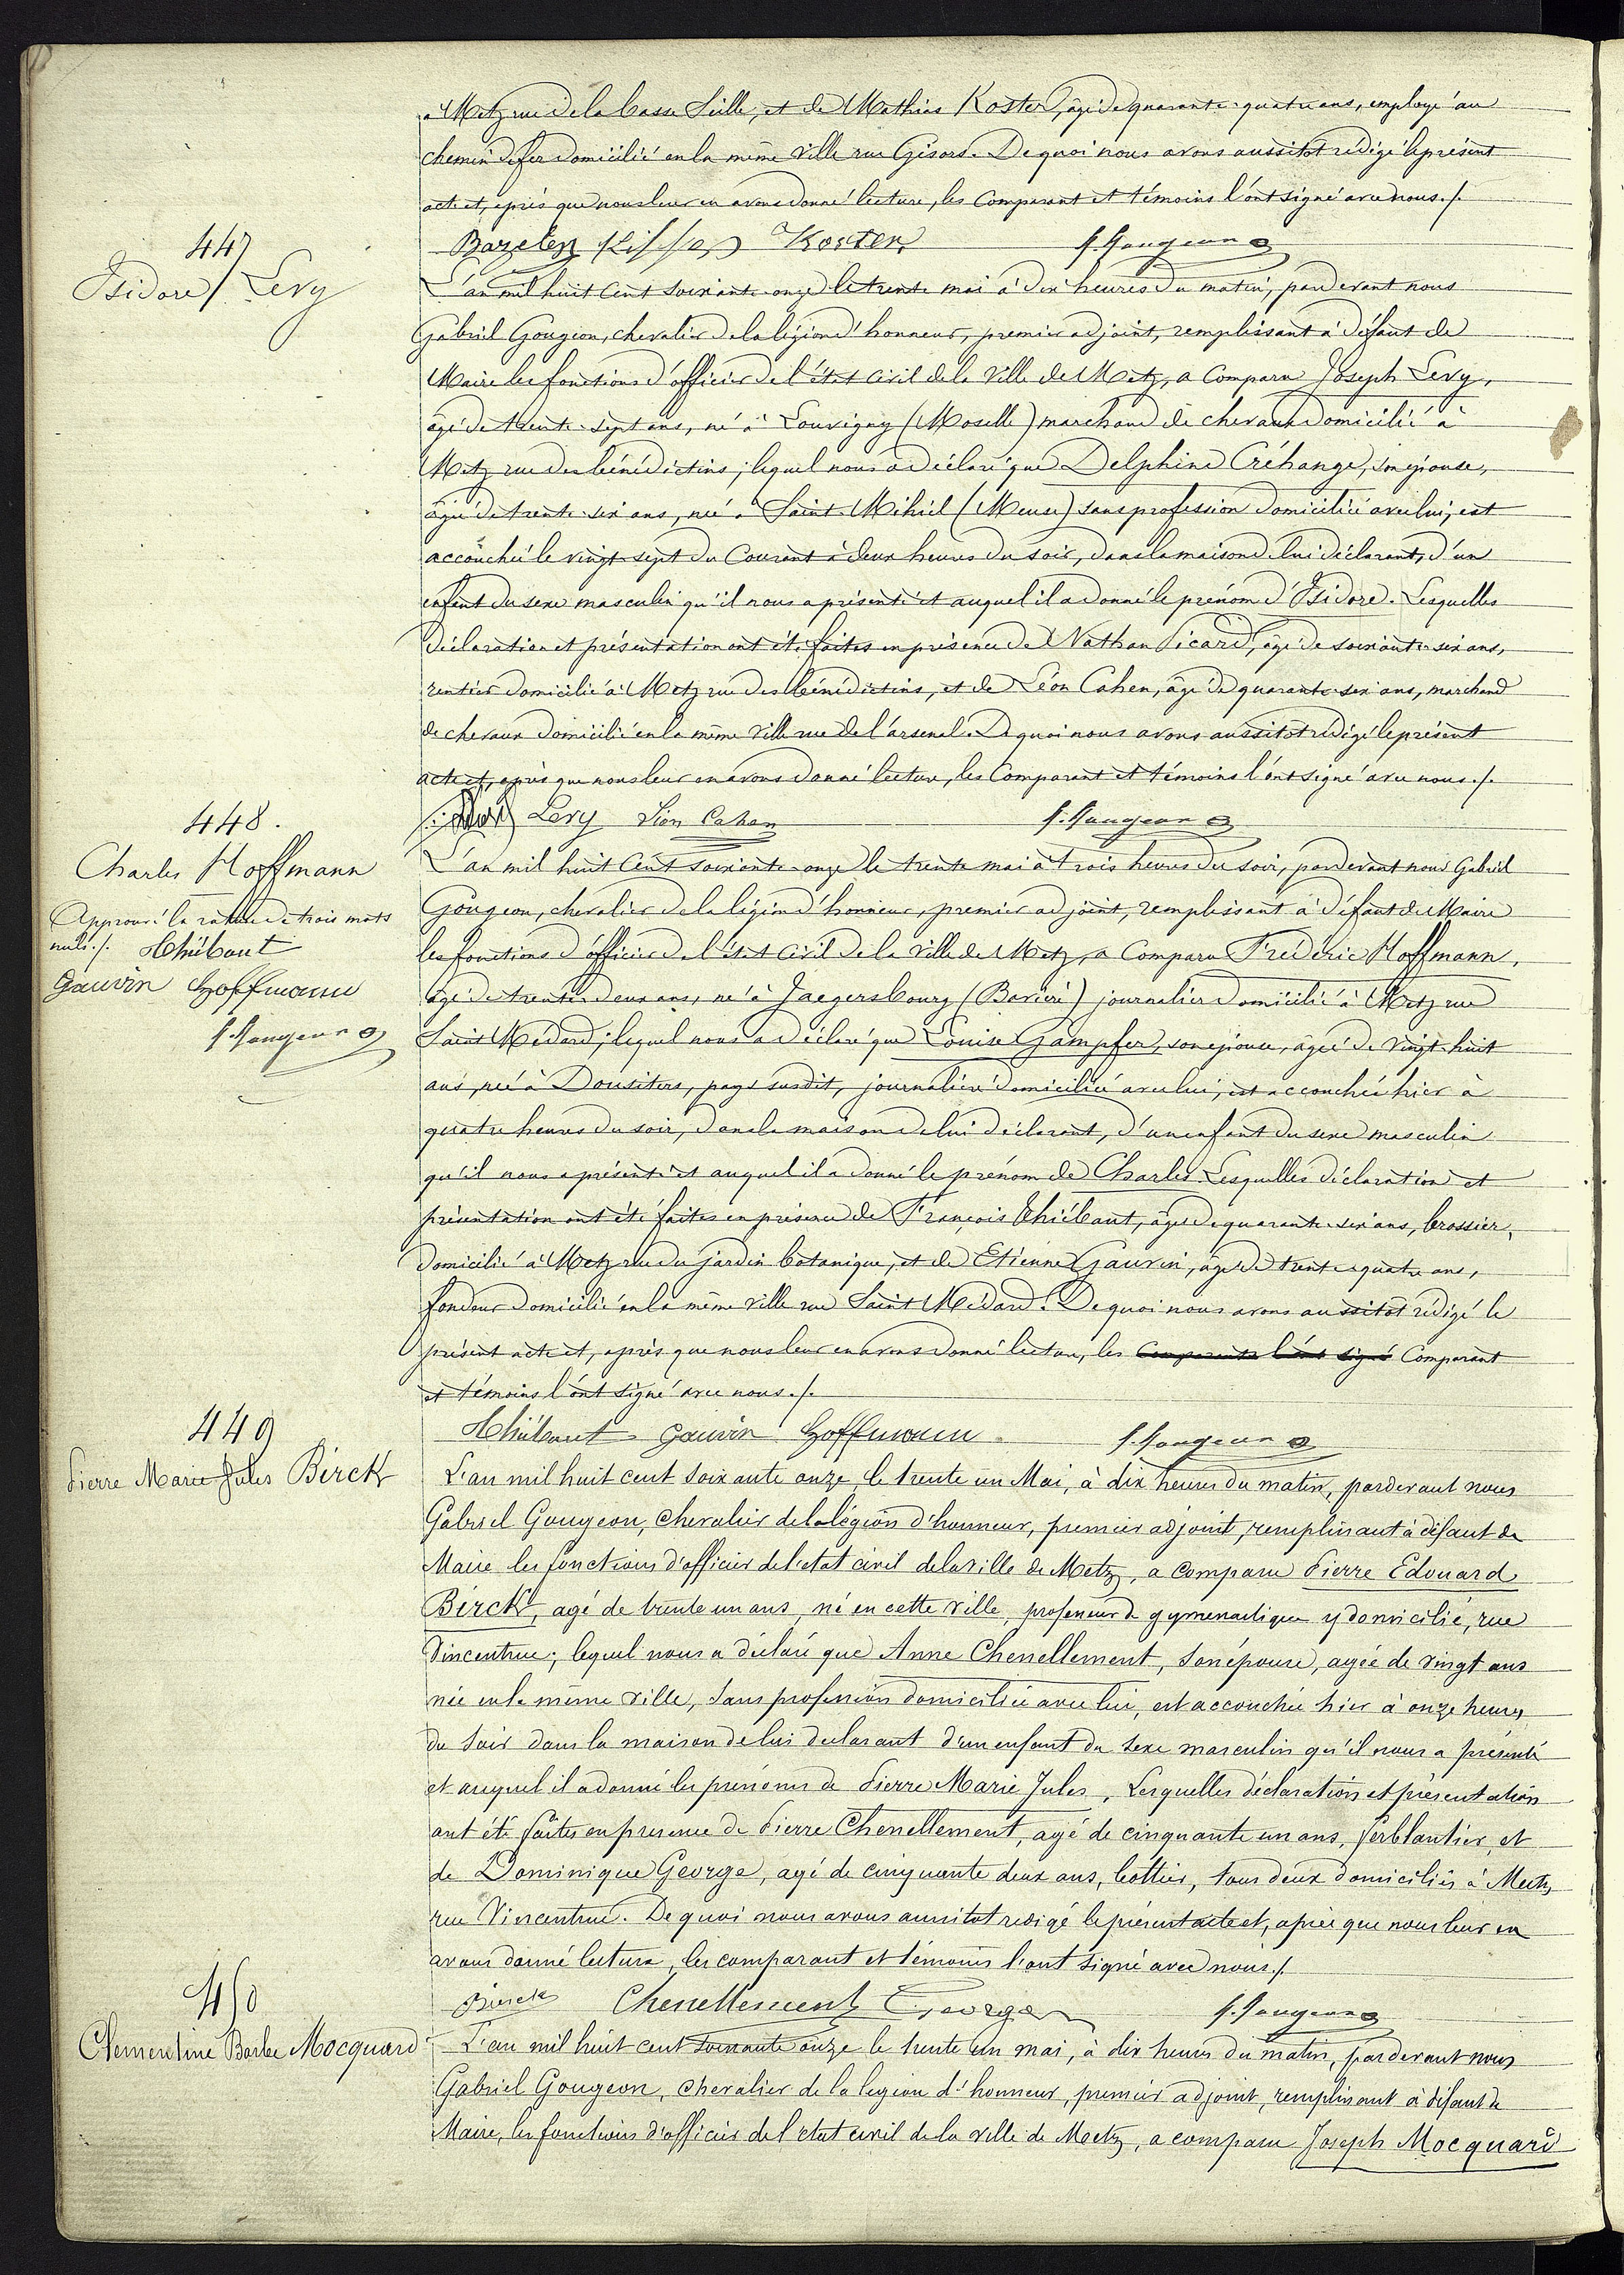 à Metz rue de la basse Seille, et de Mathias Koster, âgé de quarante-quatre ans, employé au
chemin de fer domicilié en la même ville rue Gisors. De quoi nous avons aussitôt rédigé le présent
acte et, après que nous leur en avons donné lecture, les Comparant et témoins l'ont signé avec nous ./.
Koster G. Gougeon
447
Isidore Levy
L'an mil huit Cent soixante-onze le trente mai à dix heures du matin, pardevant nous
Gabriel Gougeon, chevalier de la légion d'honneur, premier adjoint, remplissant à défaut de
Maire les fonctions d'officier de l'état civil de la Ville de Metz, a Comparu Joseph Levy,
âgé de trente-sept ans, né à Louvigny (Moselle) marchand de chevaux domicilié à
Metz rue des bénédictins; lequel nous a déclaré que Delphine Créhange, son épouse,
âgée de trente-six ans, née à Saint-Mihiel (Meuse) sans profession domiciliée avec lui, est
accouchée le vingt-sept du Courant à deux heures du soir, dans la maison de lui déclarant, d'un
enfant du sexe masculin qu'il nous a présenté et auquel il a donné le prénom d'Isidore. Lesquelles
déclaration et présentation ont été faites en présence de Nathan Picard, âgé de soixante-six ans,
rentier domicilié à Metz rue des bénédictins, et de Léon Cahen, âgé de quarante-six ans, marchand
de chevaux domicilié en la même Ville rue de l'arsenal. De quoi nous avons aussitôt rédigé le présent
acte et, après que nous leur en avons donné lecture, les Comparant et témoins l'ont signé avec nous ./.
Levy Léon Cahen G. Gougeon
448.
Charles Hoffmann
Approuvé la rature de trois mots
nuls ./. Thiébaut
Gauvin Hoffmann
G. Gougeon
L'an mil huit Cent soixante-onze le trente mai à trois heures du soir, pardevant nous Gabriel
Gougeon, chevalier de la légion d'honneur, premier adjoint, remplissant à défaut de Maire
les fonctions d'officier de l'état Civil de la Ville de Metz, a Comparu Frédéric Hoffmann,
âgé de trente-deux ans, né à Jaegersbourg (Bavière) journalier domicilié à Metz rue
Saint Médard; lequel nous a déclaré que Louise Gampfer, son épouse, âgée de vingt-huit
ans, née à Dousiters, pays susdit, journalière domiciliée avec lui, est accouchée hier à
quatre heures du soir, dans la maison de lui déclarant, d'un enfant du sexe masculin
qu'il nous a présenté et auquel il a donné le prénom de Charles. Lesquelles déclaration et
présentation ont été faites en présence de François Thiébaut, âgé de quarante-six ans, brossier,
domicilié à Metz rue du jardin botanique, et de Etienne Gauvin, âgé de trente-quatre ans,
fondeur domicilié en la même ville rue Saint Médard. De quoi nous avons aussitôt rédigé le
présent acte et, après que nous leur en avons donné lecture, les Comparants l'ont signé Comparant
et témoins l'ont signé avec nous ./.
Thiébaut Gauvin Hoffmann G. Gougeon
449
Pierre Marie Jules Birck
L'an mil huit cent soixante onze, le trente un Mai, à dix heures du matin, pardevant nous
Gabriel Gougeon, Chevalier de la légion d'honneur, premier adjoint, remplissant à défaut de
Maire les fonctions d'officier de l'état civil de la ville de Metz, a comparu Pierre Edouard
Birck, agé de trente un ans, né en cette ville, professeur de gymnastique y domicilié, rue
Vincentrue; lequel nous a déclaré que Anne Chenellement, son épouse, agée de vingt ans
née en la même ville, sans profession domiciliée avec lui, est accouchée hier à onze heures
du soir dans la maison de lui declarant d'un enfant du sexe masculin qu'il nous a présenté
et auquel il a donné les prénoms de Pierre Marie Jules. Lesquelles déclaration et présentation
ont été faites en presence de Pierre Chenellement, agé de cinquante un ans, ferblantier, et
de Dominique George, agé de cinquante deux ans, bottier, tous deux domiciliés à Metz,
rue Vincentrue. De quoi nous avons aussitot redigé le présent acte et, après que nous leur en
avons donné lecture, les comparant et témoins l'ont signé avec nous ./.
Birck Chenellement George G. Gougeon
450
Clementine Barbe Mocquard
L'an mil huit cent soixante onze le trente un mai, à dix heures du matin, pardevant nous
Gabriel Gougeon, Chevalier de la legion d'honneur, premier adjoint, remplissant à défaut de
Maire, les fonctions d'officier de l'état civil de la ville de Metz, a comparu Joseph Mocquard